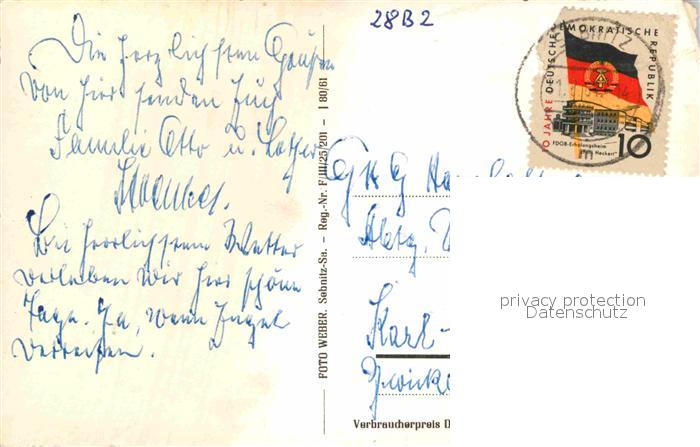 28B2
Die herzlichsten Grüße
von hier senden Euch
Familie Otto u. Lothar
Bei herrlichstem Wetter
verleben wir hier schöne
Tage. Ja, wenn Engel
verreisen.
FOTO WEBER, Sebnitz-Sa. – Reg.-Nr. F/III/25/201 – I 80/61
10 JAHRE DEUTSCHE DEMOKRATISCHE REPUBLIK
FDGB-Erholungsheim
Heckert"
10
m
GHG
Abtg.
Karl-
Zwick
Verbraucherpreis D
privacy protection
Datenschutz